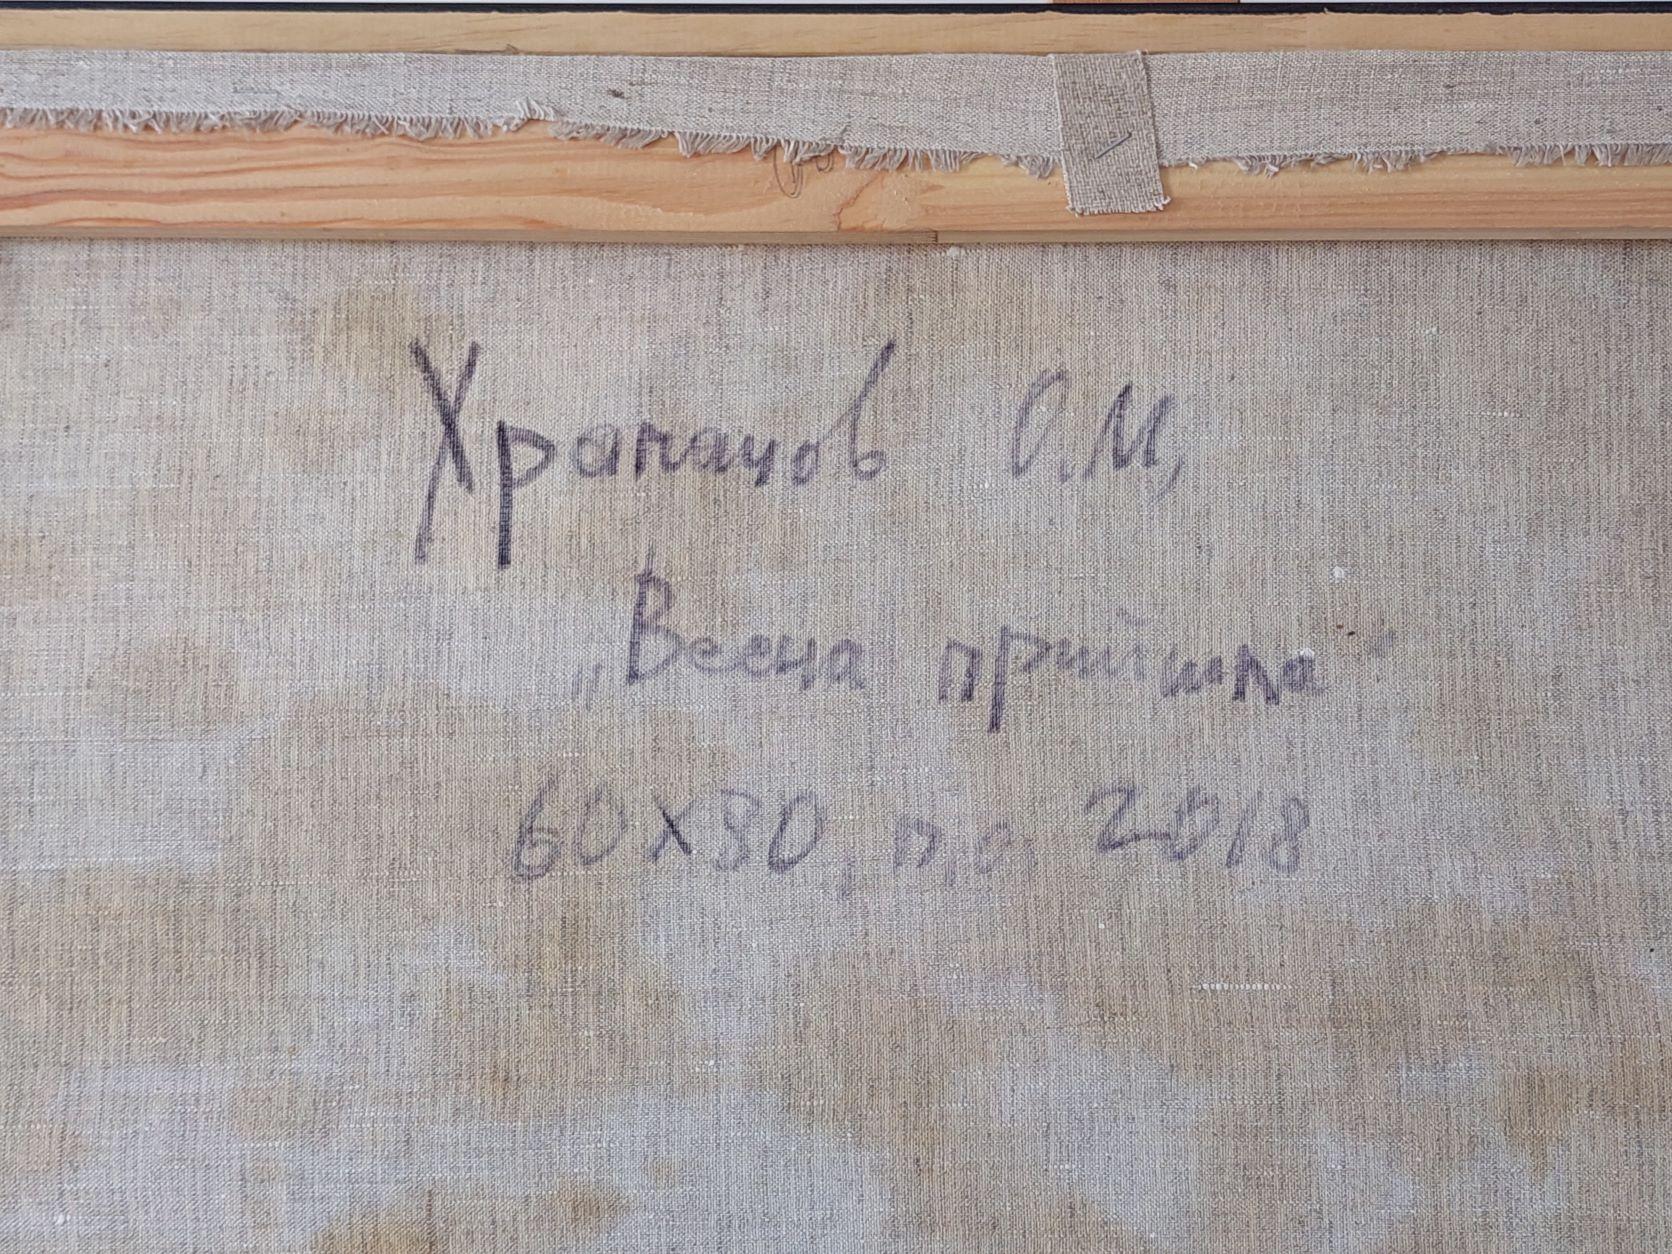 Храпачов О.М,
„Весна прийшла"
60х80, п,о. 2018